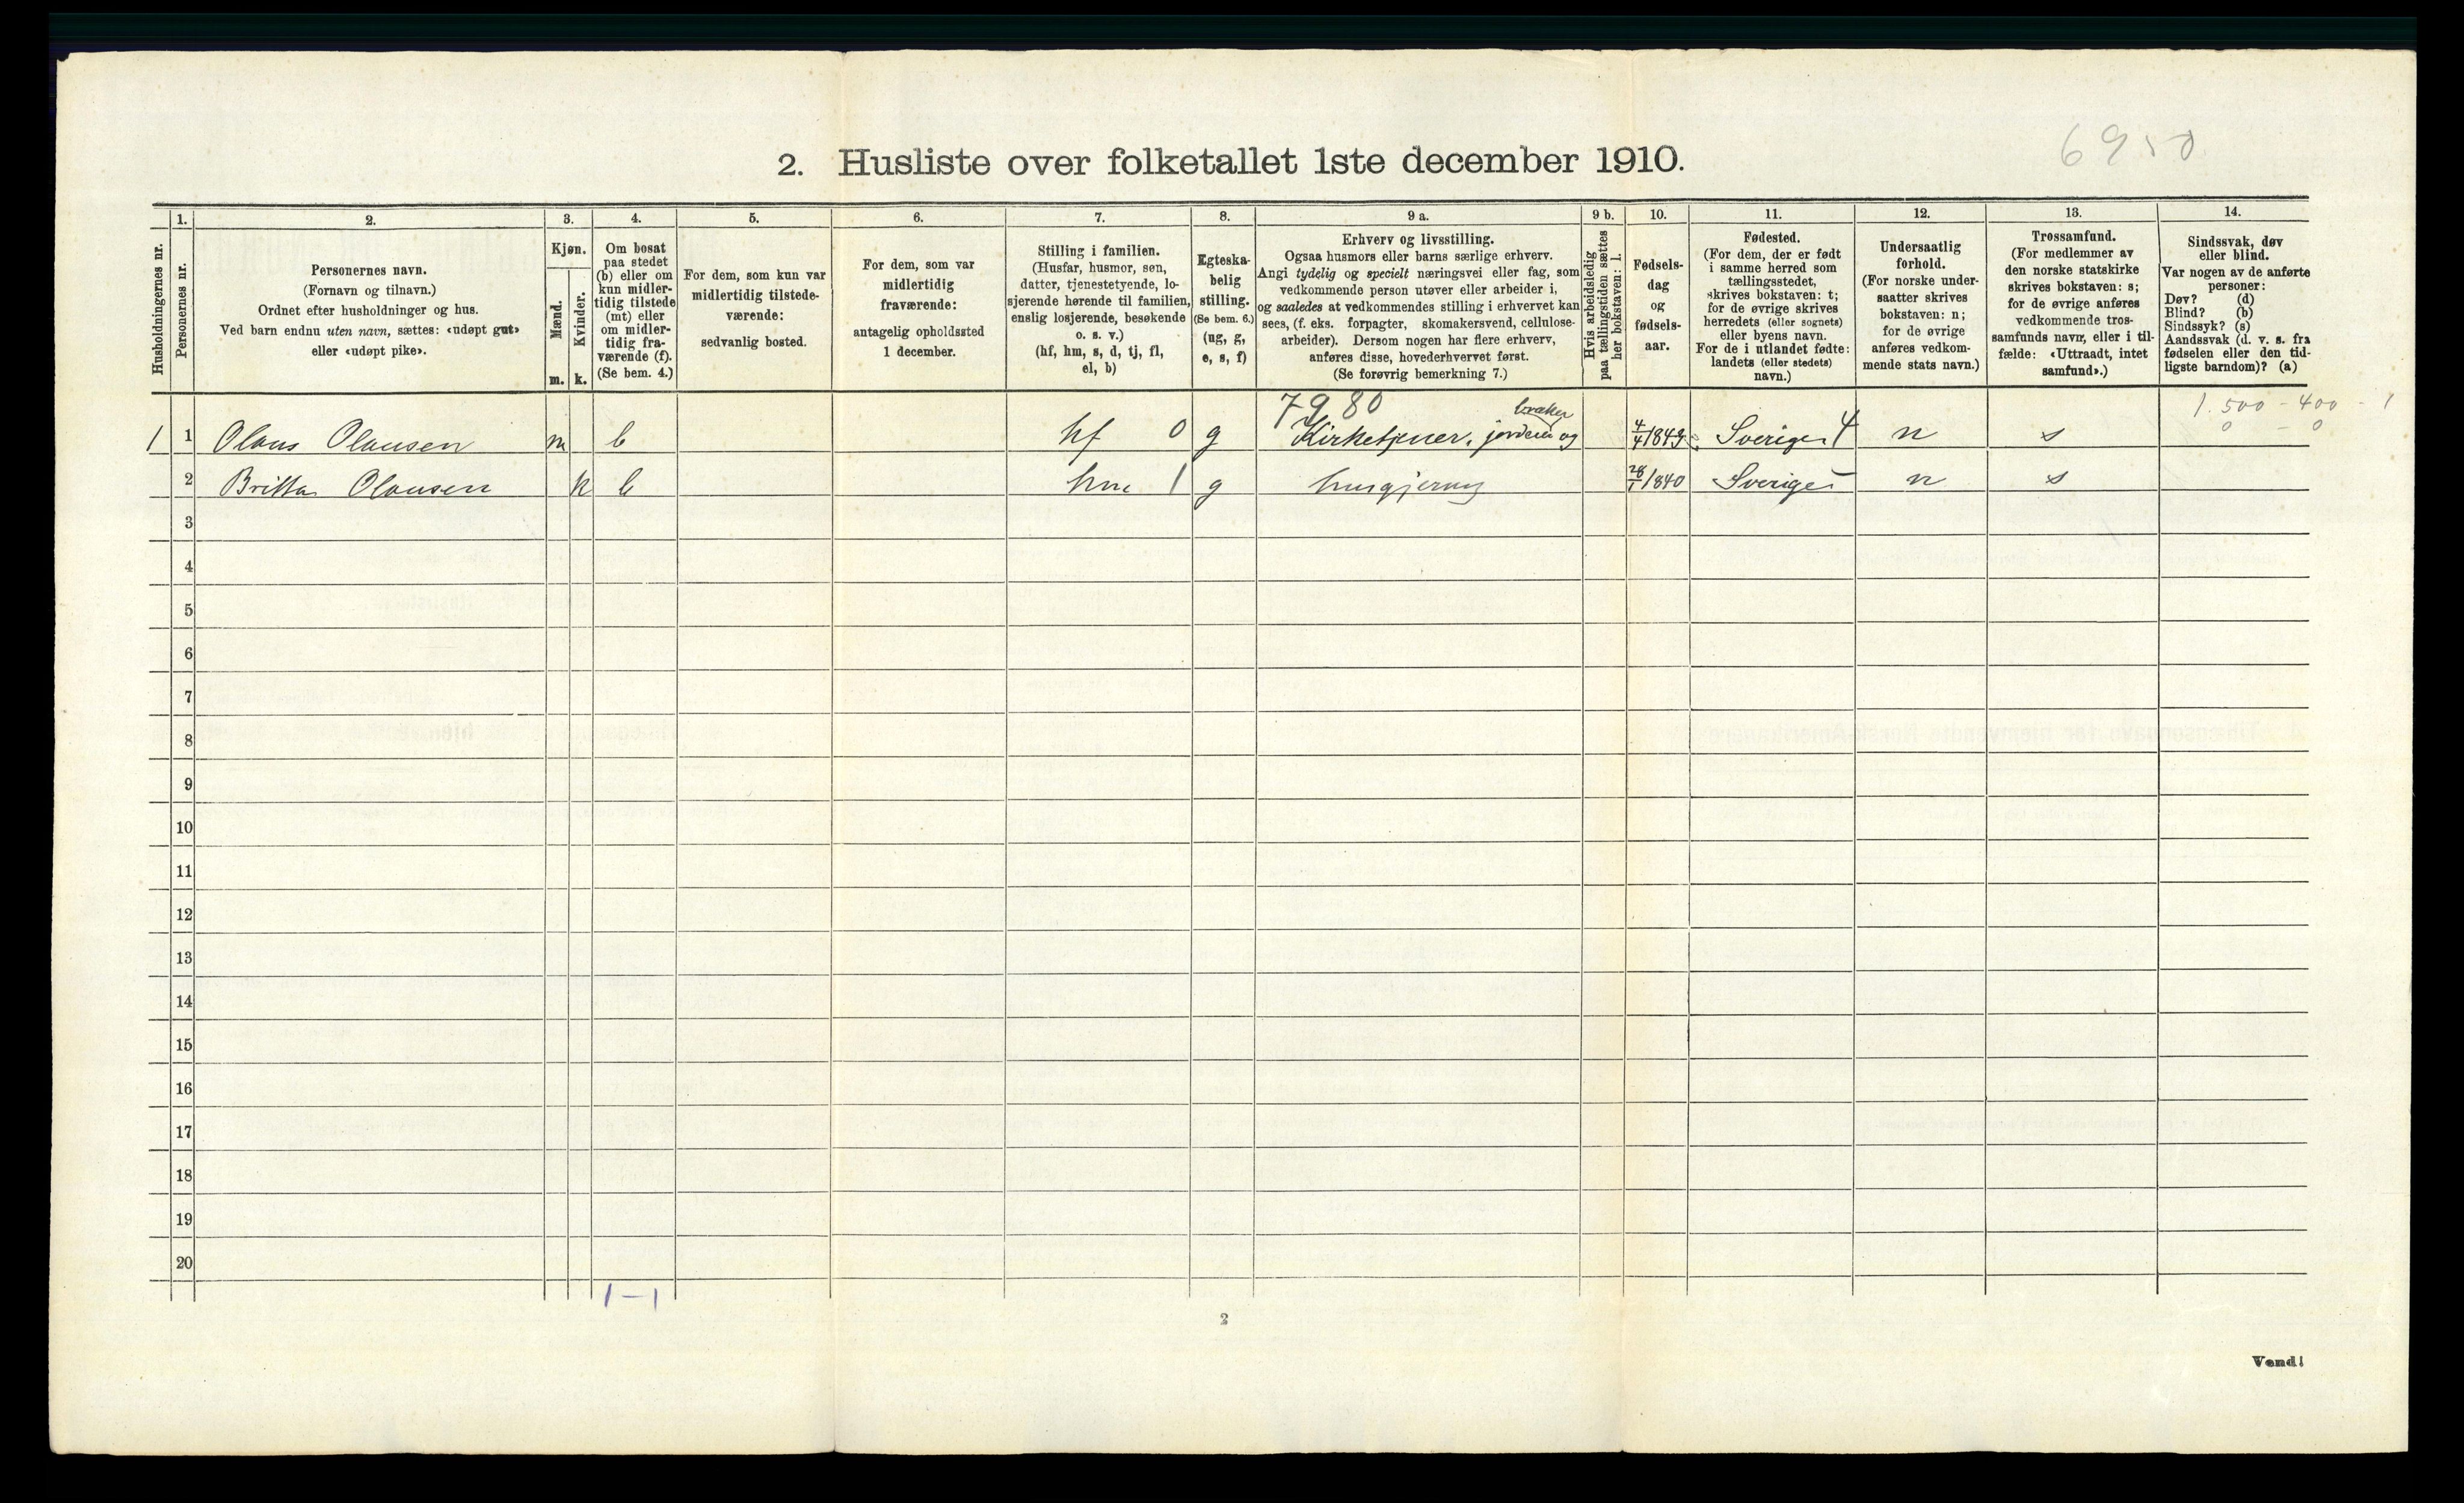 6950
2. Husliste over folketallet 1ste december 1910.
Husholdningernes nr.
1.
Personernes nr.
2.
Personernes navn.
(Fornavn og tilnavn.)
Ordnet efter husholdninger og hus.
Ved barn endnu uten navn, sættes: «udøpt gut»
eller «udøpt pike».
3.
Kjøn.
Mænd.
Kvinder.
m. k.
4.
Om bosat
paa stedet
(b) eller om
kun midler-
tidig tilstede
(mt) eller
om midler-
tidig fra-
værende (f).
(Se bem. 4.)
5.
For dem, som kun var
midlertidig tilstede-
værende:
sedvanlig bosted.
6.
For dem, som var
midlertidig
fraværende:
antagelig opholdssted
1 december.
7.
Stilling i familien.
(Husfar, husmor, søn,
datter, tjenestetyende, lo-
sjerende hørende til familien,
enslig losjerende, besøkende
o. s. v.)
(hf, hm, s, d, tj, fl,
el, b)
8.
Egteska-
belig
stilling.
(Se bem. 6.)
(ug, g,
e, s, f)
9 a.
Erhverv og livsstilling.
Ogsaa husmors eller barns særlige erhverv.
Angi tydelig og specielt næringsvei eller fag, som
vedkommende person utøver eller arbeider i,
og saaledes at vedkommendes stilling i erhvervet kan
sees, (f. eks. forpagter, skomakersvend, cellulose-
arbeider). Dersom nogen har flere erhverv,
anføres disse, hovederhvervet først.
(Se forøvrig bemerkning 7.)
9 b.
Hvis arbeidsledig
paa tællingstiden sættes
her bokstaven: l.
10.
Fødsels-
dag
og
fødsels-
aar.
11.
Fødested.
(For dem, der er født
i samme herred som
tællingsstedet,
skrives bokstaven: t;
for de øvrige skrives
herredets (eller sognets)
eller byens navn.
For de i utlandet fødte:
landets (eller stedets)
navn.)
12.
Undersaatlig
forhold.
(For norske under-
saatter skrives
bokstaven: n;
for de øvrige
anføres vedkom-
mende stats navn.)
13.
Trossamfund.
(For medlemmer av
den norske statskirke
skrives bokstaven: s;
for de øvrige anføres
vedkommende tros-
samfunds navn, eller i til-
fælde: «Uttraadt, intet
samfund».)
14.
Sindssvak, døv
eller blind.
Var nogen av de anførte
personer:
Døv? (d)
Blind? (b)
Sindssyk? (s)
Aandssvak (d. v. s. fra
fødselen eller den tid-
ligste barndom)? (a)
7980 bruker 1.500 - 400 - 1
1 1 Olaus Olausen m b hf 0 g Kirketjener, og 4/4 1849 Sverige 4 n s 0 - 0
2 Britta Olausen k b hm 1 g husgjerning 28/1 1840 Sverige n s
3
4
5
6
7
8
9
10
11
12
13
14
15
16
17
18
19
20
1 - 1
2
Vend!